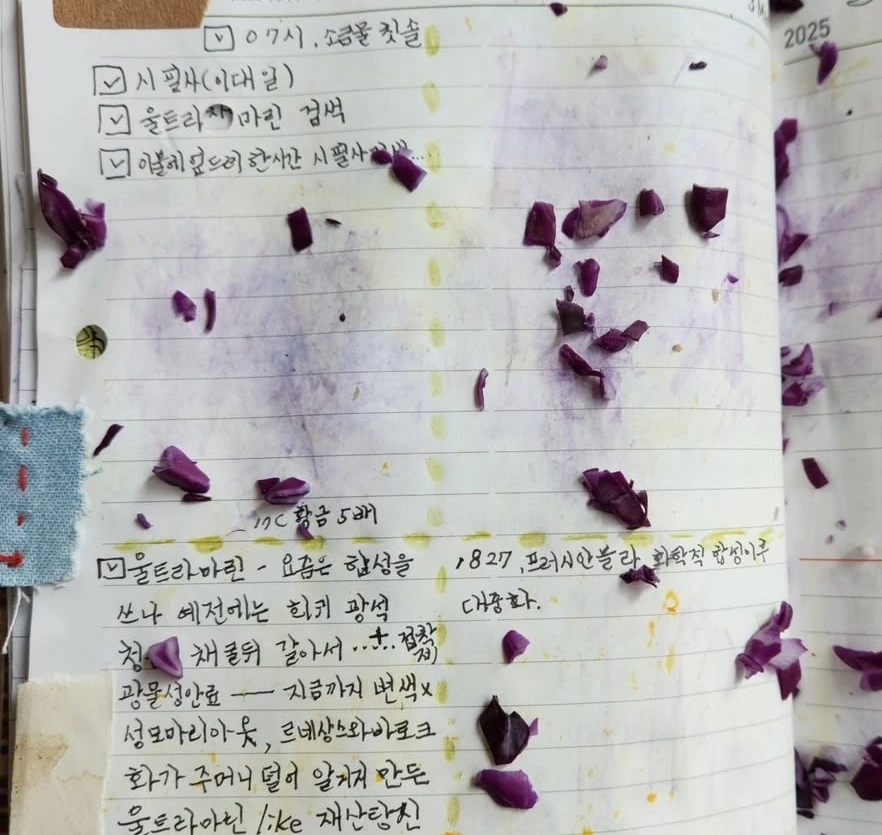 2025
07시, 소금물 칫솔
시 필사(이대일)
울트라 마린 검색
한시간 시 필사
황금 5배
울트라마린 - 요즘은 합성을
쓰나 예전에는 희귀 광석
청 채굴뒤 갈아서 ..... + 접착제
광물성안료 — 지금까지 변색x
성모마리아 옷, 르네상스와 바로크
화가 주머니 털어 알거지 만든
울트라마린 like 재산탕진
1827, 프러시안블루 화학적 합성이후
대중화.